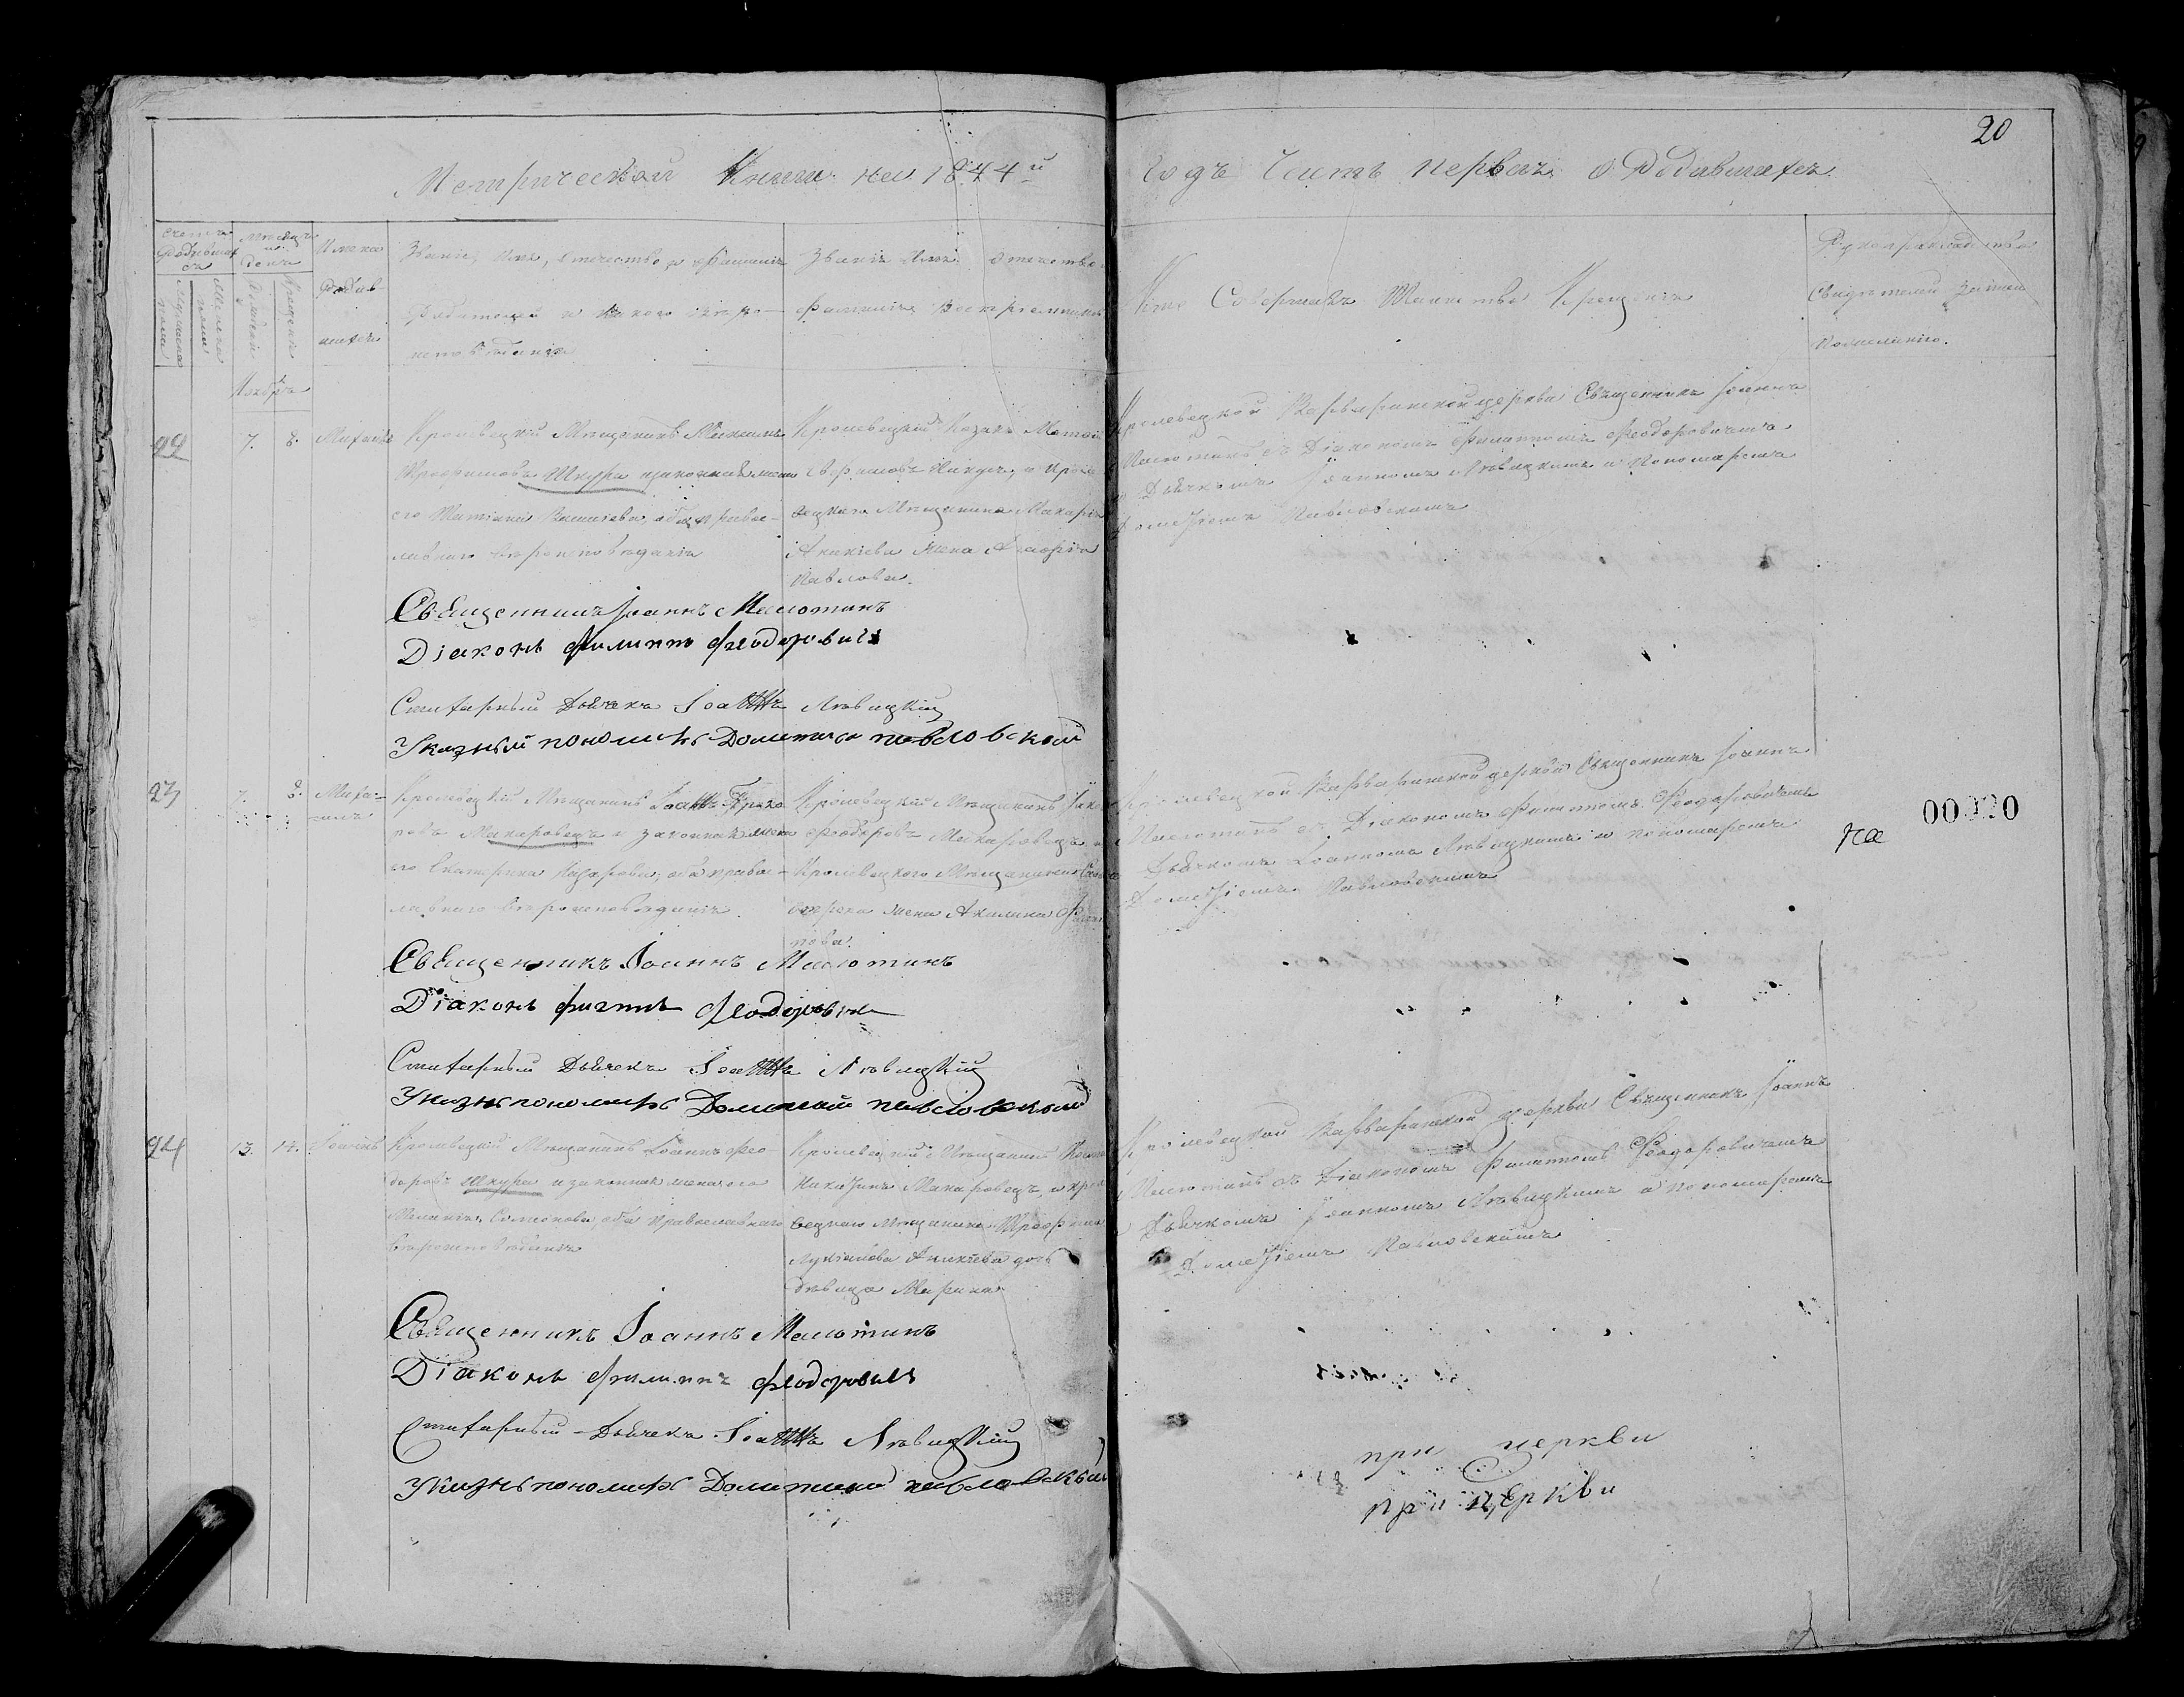 20
Метрической Книги на 1844й
годъ Часть первая о Родившихся
Счетъ Родившихся
Мѣсяцъ и день
Имена Родившихся
Мужеска пола
Женска пола
Рожденія
Крещенія
Званіе, Имя, отечество и фамилія
Родителей и какого вѣро-
исповѣданія
Званіе Имя отечество
фамилія Воспріемниковъ
Кто Совершалъ Таинство Крещенія
Рукоприкладство
Свидѣтелей записи
по желанію.
Ноября
22 7. 8. Михаилъ
Кролевецкій Мѣщанинъ Максимъ
Трофимовъ Шкура и законная жена
его Татіана Васильева, оба право-
славнаго вѣроисповѣданія
Кролевецкій Козакъ
Кроле-
вецкаго Мѣщанина Макарія
Акакіева Жена
Павлова.
Кролевецкой Варваринской церкви Священникъ Іоаннъ
Малютинъ съ Діакономъ Филиппомъ Феодоровичемъ
и Дьячкомъ Іоанномъ Лѣвицкимъ и Пономаремъ
Дометіемъ Павловскимъ
Священникъ Іоаннъ Малютинъ
Діаконъ Филиппъ Феодоровичъ
Стихарный Дьячекъ Іоаннъ Лѣвицкій
Указный пономарь Дометій Павловскій
23 7. 8. Миха-
илъ
Кролевецкій Мѣщанинъ Іоаннъ
Макаровецъ и законная жена
его Екатерина Назарова, оба право-
славнаго вѣроисповѣданія.
Кролевецкій Мѣщанинъ
Феодоровъ Макаровецъ, и
Кролевецкаго Мѣщанина
жена Акилина
Кролевецкой Варваринской церкви Священникъ Іоаннъ
Малютинъ съ Діакономъ Филиппомъ Феодоровичемъ
Дьячкомъ Іоанномъ Лѣвицкимъ и пономаремъ
Дометіемъ Павловскимъ
на
00020
Священникъ Іоаннъ Малютинъ
Діаконъ Филиппъ Феодоровичъ
Стихарный Дьячекъ Іоаннъ Лѣвицкій
Указный пономарь Дометій Павловскій
24 13. 14. Іоаннъ
Кролевецкій Мѣщанинъ Іоаннъ Фео-
доровъ Шкура и законная жена его
Меланія Симеонова, оба православнаго
вѣроисповѣданія
Кролевецкій Мѣщанинъ
Макаровецъ, и Кроле-
вецкаго Мѣщанина Трофима
дочь
дѣвица Марина
Кролевецкой Варваринской церкви Священникъ Іоаннъ
Малютинъ съ Діакономъ Филиппомъ Феодоровичемъ
Дьячкомъ Іоанномъ Лѣвицкимъ и пономаремъ
Дометіемъ Павловскимъ
Священникъ Іоаннъ Малютинъ
Діаконъ Филиппъ Феодоровичъ
Стихарный Дьячекъ Іоаннъ Лѣвицкій
Указный пономарь Дометій Павловскій
при церкви
при церкви